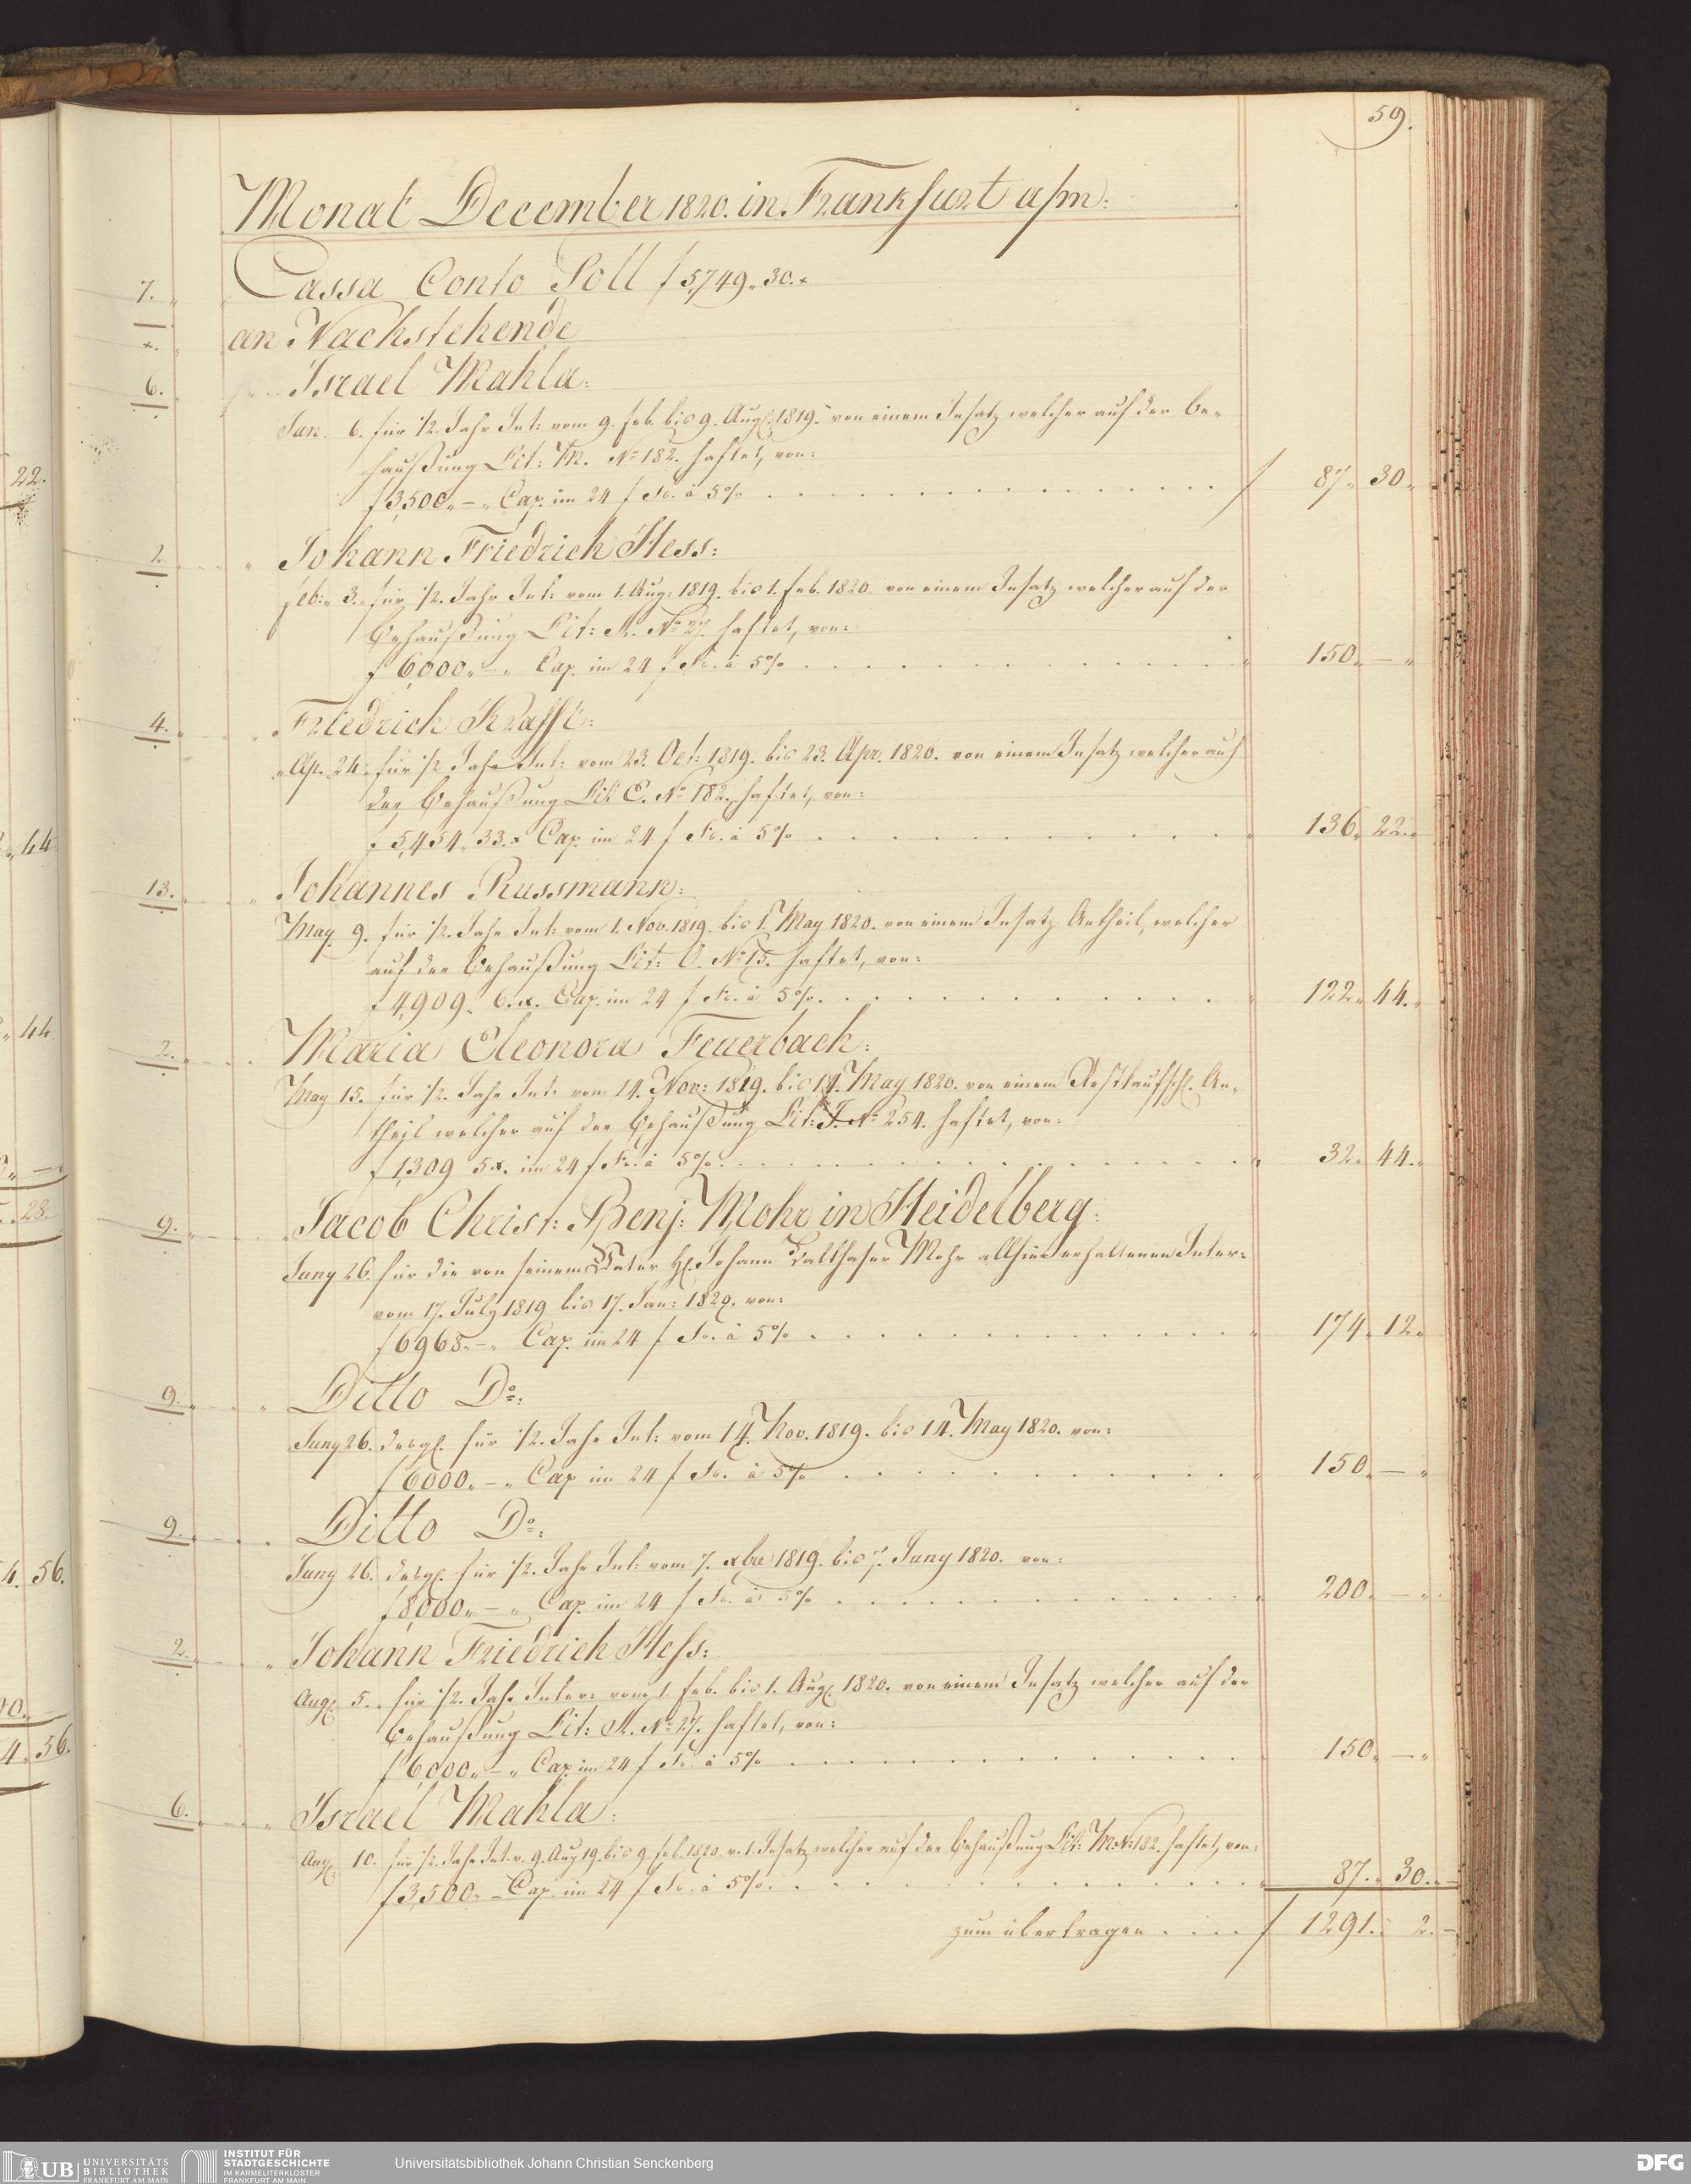 59.
Monat December 1820. in Frankfurt a/m:
7. Cassa Conto Soll f 5,749. 30. x
x. an Nachstehende
6. Israel Mahla:
Jan. 6. für 1/2. Jahr Int: vom 9. Feb. bis 9. Aug. 1819. von einem Insatz welcher auf der Be-
haußung Lit: M. No 182. haftet, von:
f 3,500. – " Cap. im 24 f Fs. à 5% . . . f 87. 30.
2. Johann Friedrich Hess:
Feb: 3. für 1/2. Jahr Int: vom 1. Aug: 1819. bis 1. Feb. 1820. von einem Insatz welcher auf der
Behaußung Lit: K. No 27. haftet, von:
f 6,000. – " Cap. im 24 f Fs. à 5% . . . 150. – "
4. Friedrich Krafft:
Ap. 24. für 1/2 Jahr Int: vom 23. Oct: 1819. bis 23. Apr. 1820. von einem Insatz welcher auf
der Behaußung Lit C. No 182. haftet, von:
f 5,454. 33. x Cap. im 24 f Fs. à 5% . . . 136. 22.
13. Johannes Russmann:
May 9. für 1/2. Jahr Int: vom 1. Nov. 1819. bis 1. May 1820. von einem Insatz Antheil, welcher
auf der Behaußung Lit: O. No 15. haftet, von:
f 4,909. 6. x. Cap. im 24 f Fs. à 5% . . . 122. 44.
2. Maria Eleonora Feuerbach:
May 15. für 1/2. Jahr Int: vom 14. Nov: 1819. bis 14. May 1820. von einem An-
theil welcher auf der Behaußung Lit: J. No 254. haftet, von:
f 1,309 5 x. im 24 f Fs. à 5% . . . 32. 44.
9. Jacob Christ: Benj: Mohr in Heidelberg:
Juny 26. für die von seinem Vater H. Johann Balthasar Mohr allhier erhaltenen Inter:
vom 17. July 1819 bis 17. Jan: 1820. von:
f 6968. – " Cap. im 24 f Fs. à 5% . . . 174. 12.
9. Ditto Do:
Juny 26. desgl. für 1/2. Jahr Int: vom 14. Nov. 1819. bis 14. May 1820. von:
f 6000. – " Cap im 24 f Fs. à 5% . . . 150. – "
9. Ditto Do:
Juny 26. desgl. für 1/2. Jahr Int: vom 7. xbre 1819. bis 7. Juny 1820. von:
f 8,000. – " Cap. im 24 f Fs. à 5% . . . 200. – "
2. Johann Friedrich Heß:
Aug. 5. für 1/2. Jahr Inter: vom 1. Feb. bis 1. Aug. 1820. von einem Insatz welcher auf der
Behaußung Lit: K. No 27. haftet, von:
f 6,000. – " Cap. im 24 f Fs. à 5% . . . 150. – "
6. Israel Mahla:
Aug. 10. für 1/2. Jahr Int. v. 9. Aug 19. bis 9. Feb. 1820. v. 1. Insatz welcher auf der Behaußung Lit: M. No: 182. haftet, von:
f 3,500. – Cap. im 24 f Fs. à 5% . . . 87. 30.
zum übertragen . . . f 1291. 2. –
22.
44
44
28.
4. 56.
4. 56.
UB UNIVERSITÄTS BIBLIOTHEK FRANKFURT AM MAIN
INSTITUT FÜR STADTGESCHICHTE IM KARMELITERKLOSTER FRANKFURT AM MAIN
Universitätsbibliothek Johann Christian Senckenberg
DFG